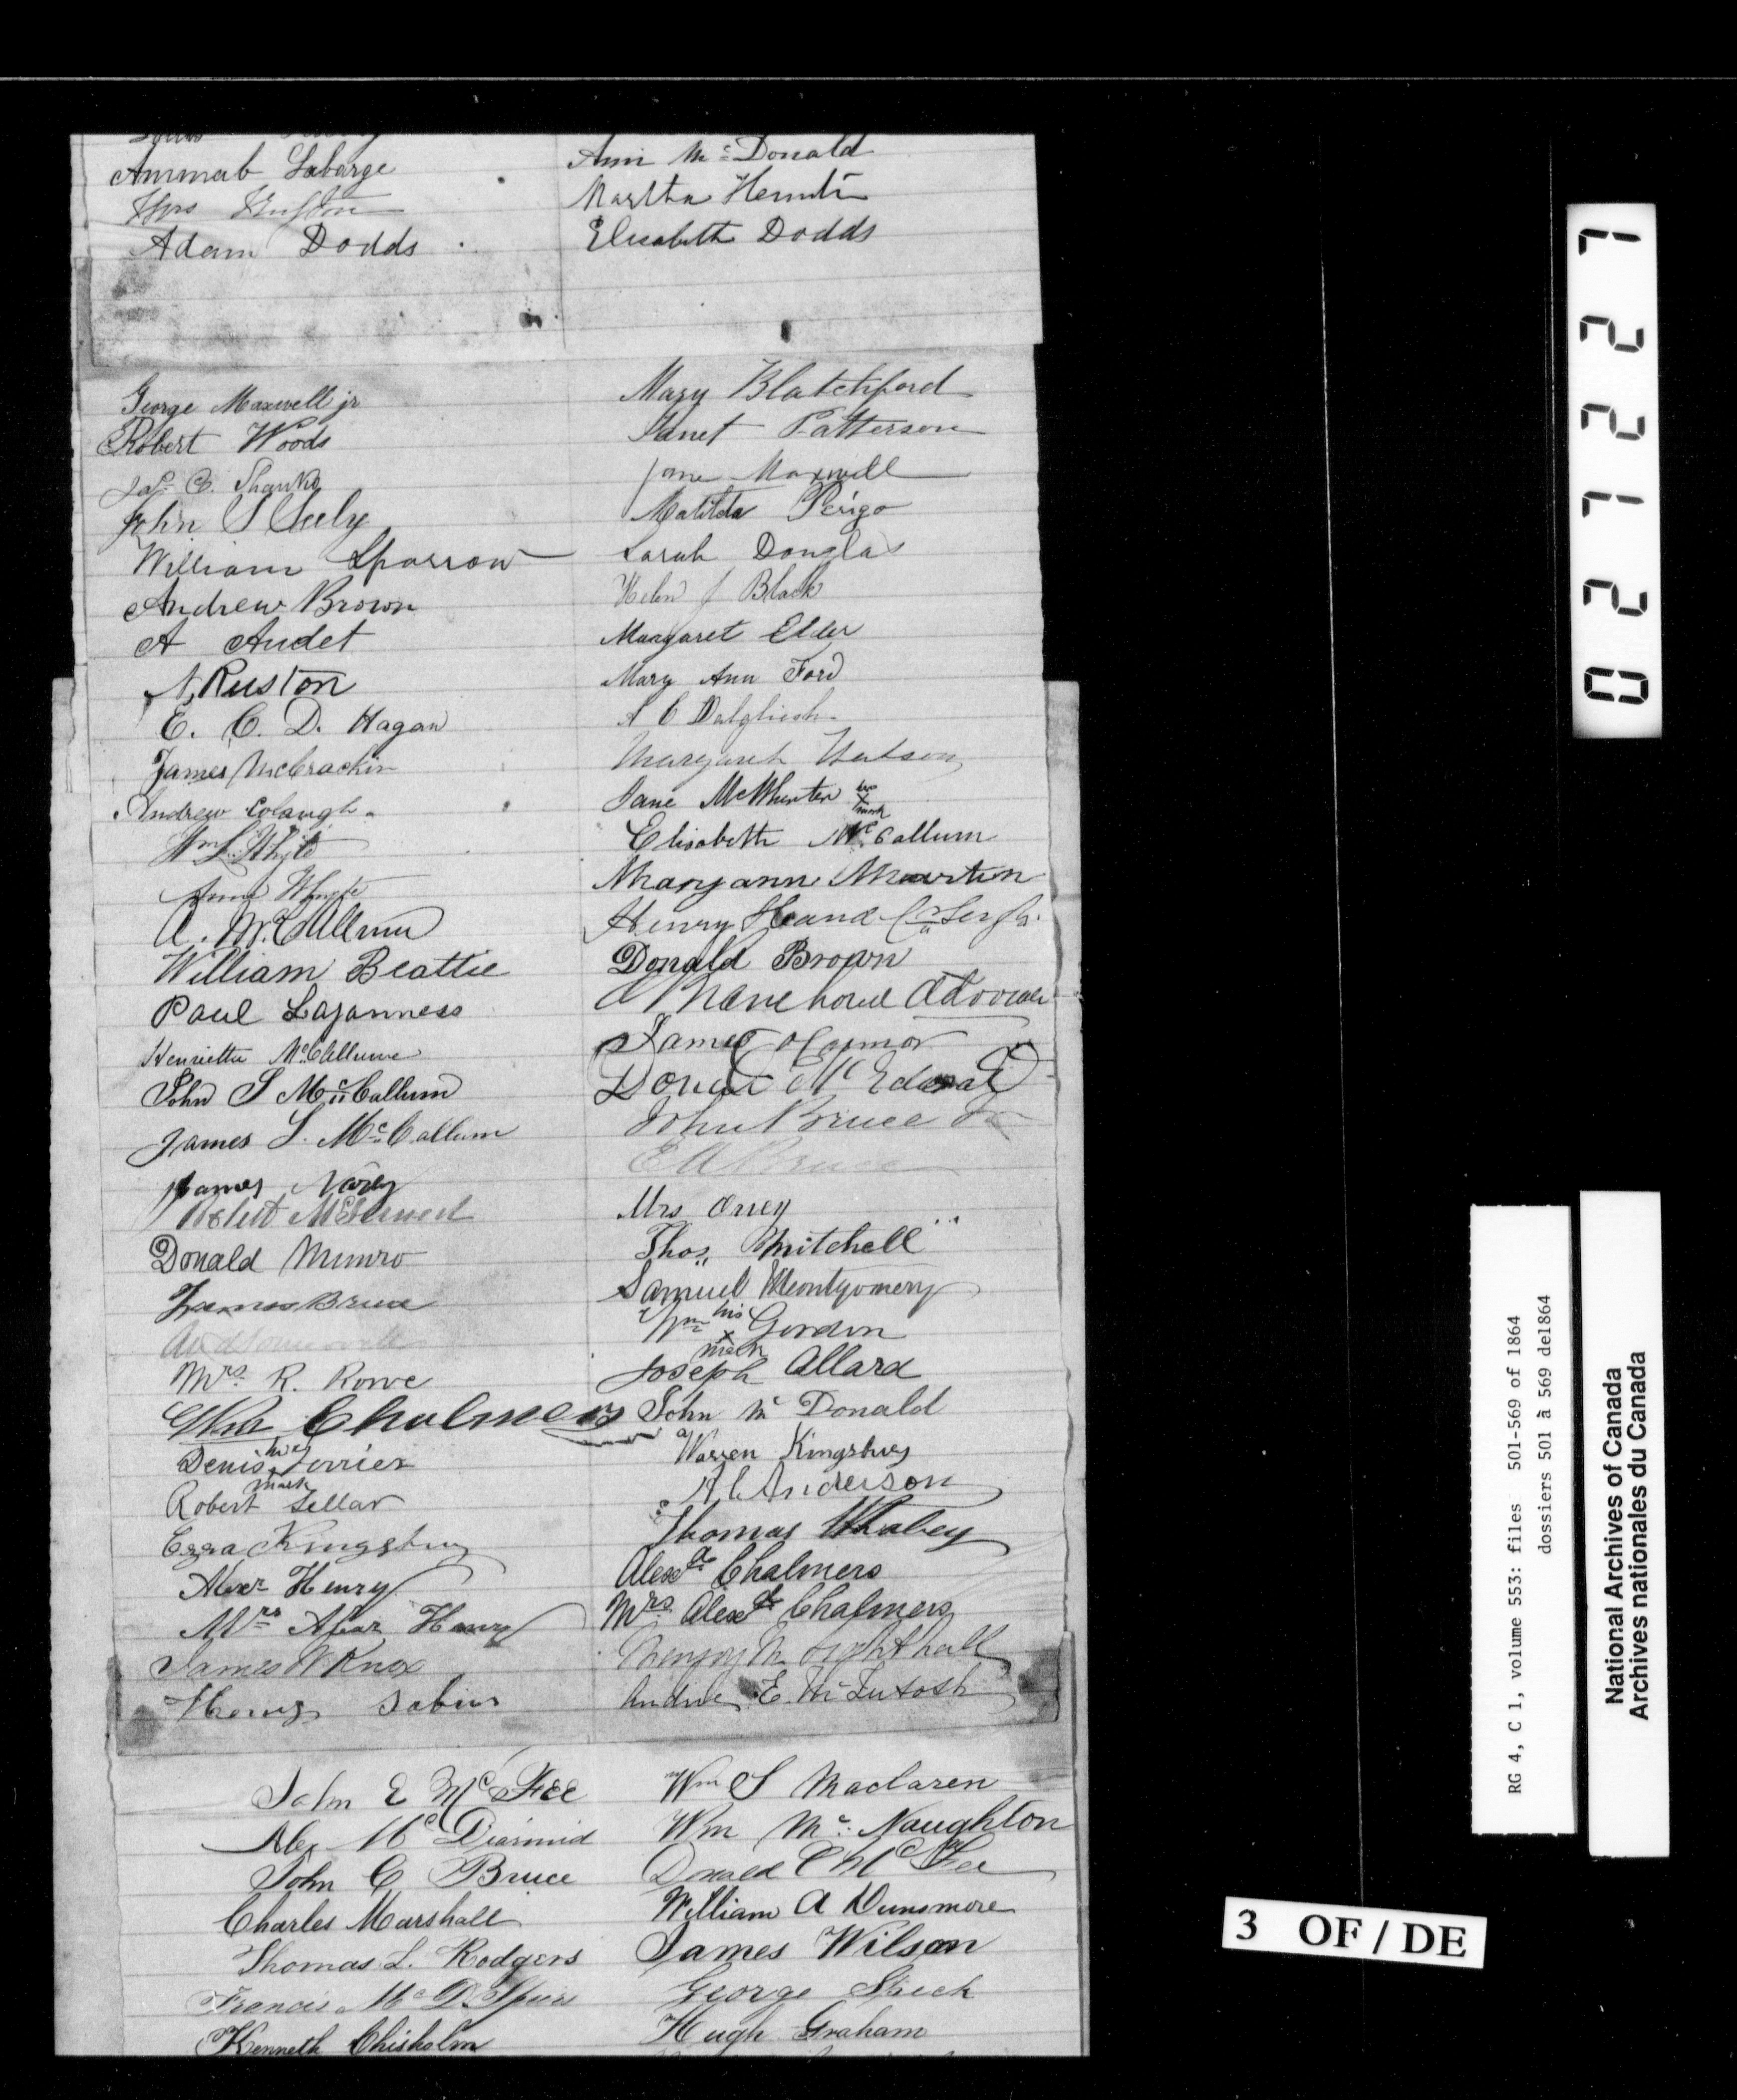 Ammab Labarge
Adam Dodds
Ann Mc Donald
Martha
Elisabeth Dodds
George Maxwell jr
Robert Woods
Jas. C. Shanks
John S Seely
William Sparrow
Andrew Brown
A Audet
N, Ruston
E. C. D. Hagan
James McCrackin
Andrew Colaugh
Wm L. Whyte
Anna Whyte
A. McCallum
William Beattie
Paul Lajanness
Henrietta McCallum
John S McCallum
James S. McCallum
James
Robert
Donald Munro
James Bruce
Mrs. R. Rowe
Chalmers
Denis his mark
Robert Sellar
Ezra Kingsbury
Alexr Henry
Mrs Henry
James W Knox
Sabin
Mary Blatchford
Janet Patterson
Jane Maxwell
Matilda Perigo
Sarah Douglas
Helen J Black
Margaret Elder
Mary Ann Ford
A C Dalgliesh
Margaret Watson
Jane McWhirter her x mark
Elisabeth McCallum
Maryann Martin
Henry
Donald Brown
James O'Connor
Donald
John Bruce
E A Bruce
Mrs
Thos,, Mitchell
Samuel Montgomery
Wm his x mark Gordon
Joseph Allard
John Mc Donald
Warren Kingsbury
A C Anderson
Thomas
Alexdr Chalmers
Mrs. Alexdr Chalmers
Andrew E. McIntosh
John E McFee
Alex McDiarmid
John C Bruce
Charles Marshall
Thomas L. Rodgers
Francis McD. Speir
Kenneth Chisholm
Wm S Maclaren
Wm Mc. Naughton
Donald C McFee
William A Dunsmore
James Wilson
George
Hugh Graham
0 2 7 1 2 2 7
RG 4, C 1, volume 553: files 501-569 of 1864
dossiers 501 à 569 de1864
National Archives of Canada
Archives nationales du Canada
3 OF / DE